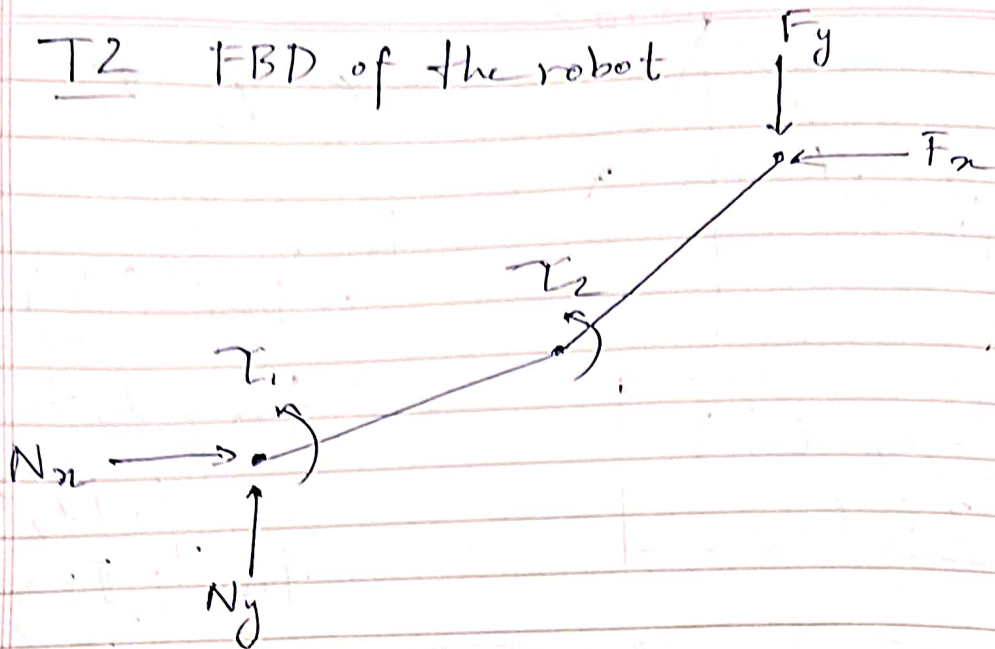 T2 FBD of the robot
Fy
Fx
τ2
τ1
Nx
Ny